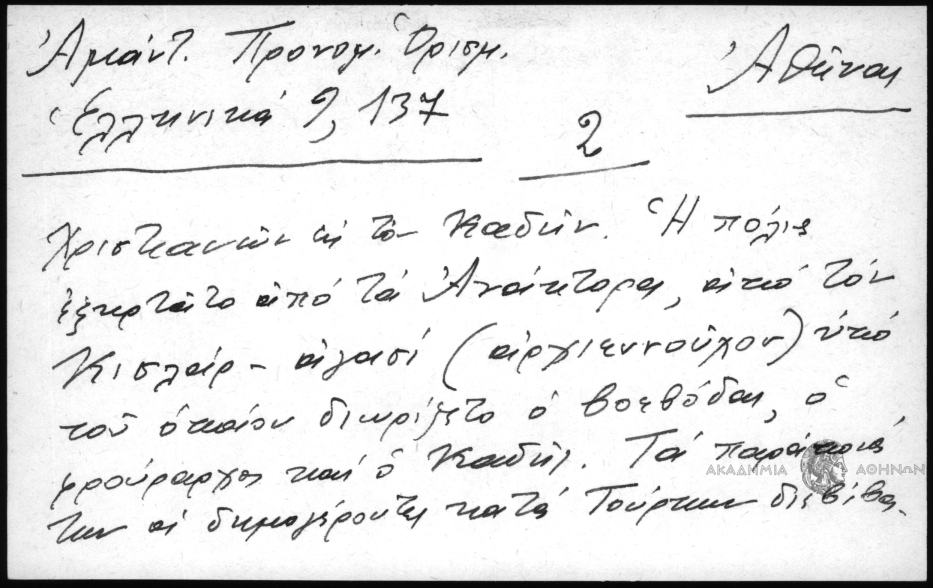 Ἀμάντ. Προνομ. Ὁρισμ.
Ἀθῆναι
Ἑλληνικά 9, 137
2
Χριστιανῶν εἰς τὸν Καδῆν. Ἡ πόλις
ἐξηρτᾶτο ἀπό τά Ἀνάκτορα, ἀπό τόν
Κισλάρ-ἀγασί (ἀρχιευνοῦχον) ὑπό
τοῦ ὁποίου διωρίζετο ὁ βοεβόδας, ὁ
φρούραρχος καί ὁ Καδής. Τά παράπονά
των οἱ δημογέροντες κατά Τούρκων διεβίβα-
ΑΚΑΔΗΜΙΑ ΑΘΗΝΩΝ